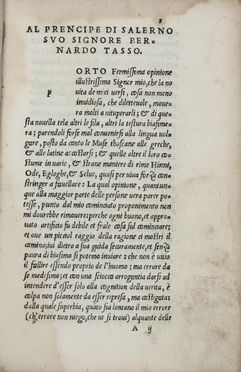 2
AL PRENCIPE DI SALERNO
SVO SIGNORE BER-
NARDO TASSO.
P
ORTO Fermissima opinione
illustrissimo Signor mio, che la no
uita de miei uersi, cosa non meno
inuidiosa, che diletteuole, moue-
ra molti a uituperarli; & di que
sta nouella tela altri le fila, altri la testura biasime-
ra; parendoli forse mal conuenirsi alla lingua uol-
gare, posto da canto le Muse thoscane alle greche,
& alle latine accostarsi; & quelle oltre il loro co-
stume in uarie, & strane maniere di rime Hinni,
Ode, Egloghe, & Selue, quasi per uiua forza con-
stringer a fauellare: La qual opinione, quantun-
que alla maggior parte delle persone uera parer po-
tesse, punto dal mio cominciato proponimento non
mi dourebbe rimouere: perche ogni buono, et approua-
to artificio su debile et frale cosa suol cominciare:
et oue un picciol raggio della ragione ci mostri il
camino; iui dietro a sua guida securamente, et senza
paura di biasimo si potemo inuiare: che non è uitio
il fallire essendo proprio de l'huomo; ma errare da
se medesimo, et con una sciocca arroganza darsi ad
intendere d'esser solo alla cognition della uerita, è
colpa non solamente da esser ripresa, ma castigata:
dalla quale superbia, quanto sia lontano il mio errore
(ch'errore non niego, che ui si troui) alquante delle
A ij